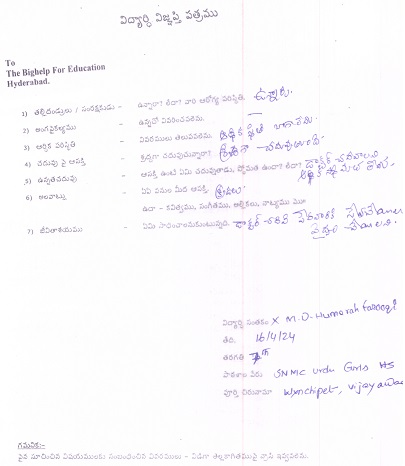 విద్యార్థి విజ్ఞప్తి పత్రము
To
The Bighelp For Education
Hyderabad.
1) తల్లిదండ్రులు / సంరక్షకుడు - ఉన్నారా? లేదా? వారి ఆరోగ్య పరిస్థితి. ఉన్నారు.
2) అంగవైకల్యము - ఉన్నచో వివరించవలెను. —
3) ఆర్థిక పరిస్థితి - వివరములు తెలుపవలెను. ఆర్థిక స్థితి బాగాలేదు
4) చదువు పై ఆసక్తి - శ్రద్ధగా చదువుచున్నారా? శ్రద్ధగా చదువుతుంది
5) ఉన్నతచదువు - ఆసక్తి ఉంటే ఏమి చదువుతాడు, స్తోమత ఉందా? లేదా? డాక్టర్ చదవాలని
ఆర్థిక స్తోమత లేదు
6) అలవాట్లు - ఏఏ పనుల మీద ఆసక్తి.
ఉదా - కవిత్వము, సంగీతము, అల్లికలు, నాట్యము మొ
7) జీవితాశయము - ఏమి సాధించాలనుకుంటున్నారు. డాక్టర్ చదివి పేదవారికి
విద్యార్థి సంతకం X M.D. Humerah farooqi
తేది. 16/4/24
తరగతి 7th
పాఠశాల పేరు SNMC urdu Gmls HS
పూర్తి చిరునామా Wynchipet, vijayawada
గమనిక:-
పైన సూచించిన విషయములకు సంబంధించిన వివరములు - విడిగా తెల్లకాగితముపై వ్రాసి ఇవ్వవలెను.